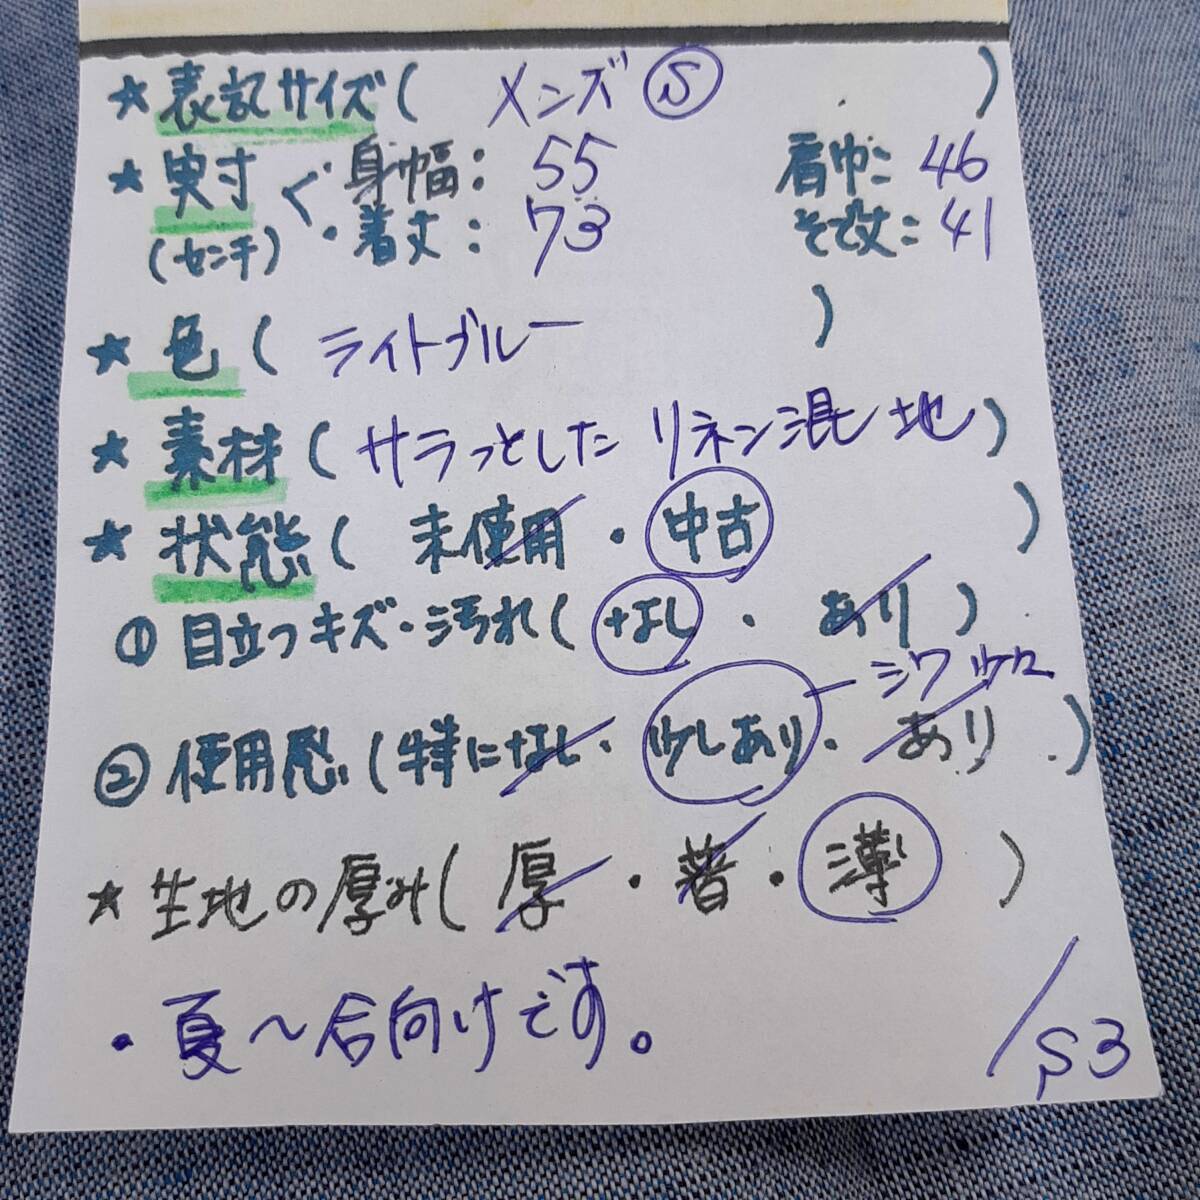 ★ 表記サイズ ( メンズ Ⓢ )
★ 実寸 < ・身幅: 55 肩巾: 46
(センチ) ・着丈: 73 そで丈: 41
★ 色 ( ライトブルー )
★ 素材 ( サラっとした リネン混 地 )
★ 状態 ( 未使用 ・ 中古 )
① 目立つキズ・汚れ ( なし ・ あり )
シワ 少々
② 使用感 ( 特になし・ 少しあり・ あり )
★ 生地の厚み ( 厚 ・ 普 ・ 薄 )
・夏〜 向けです。
/S3